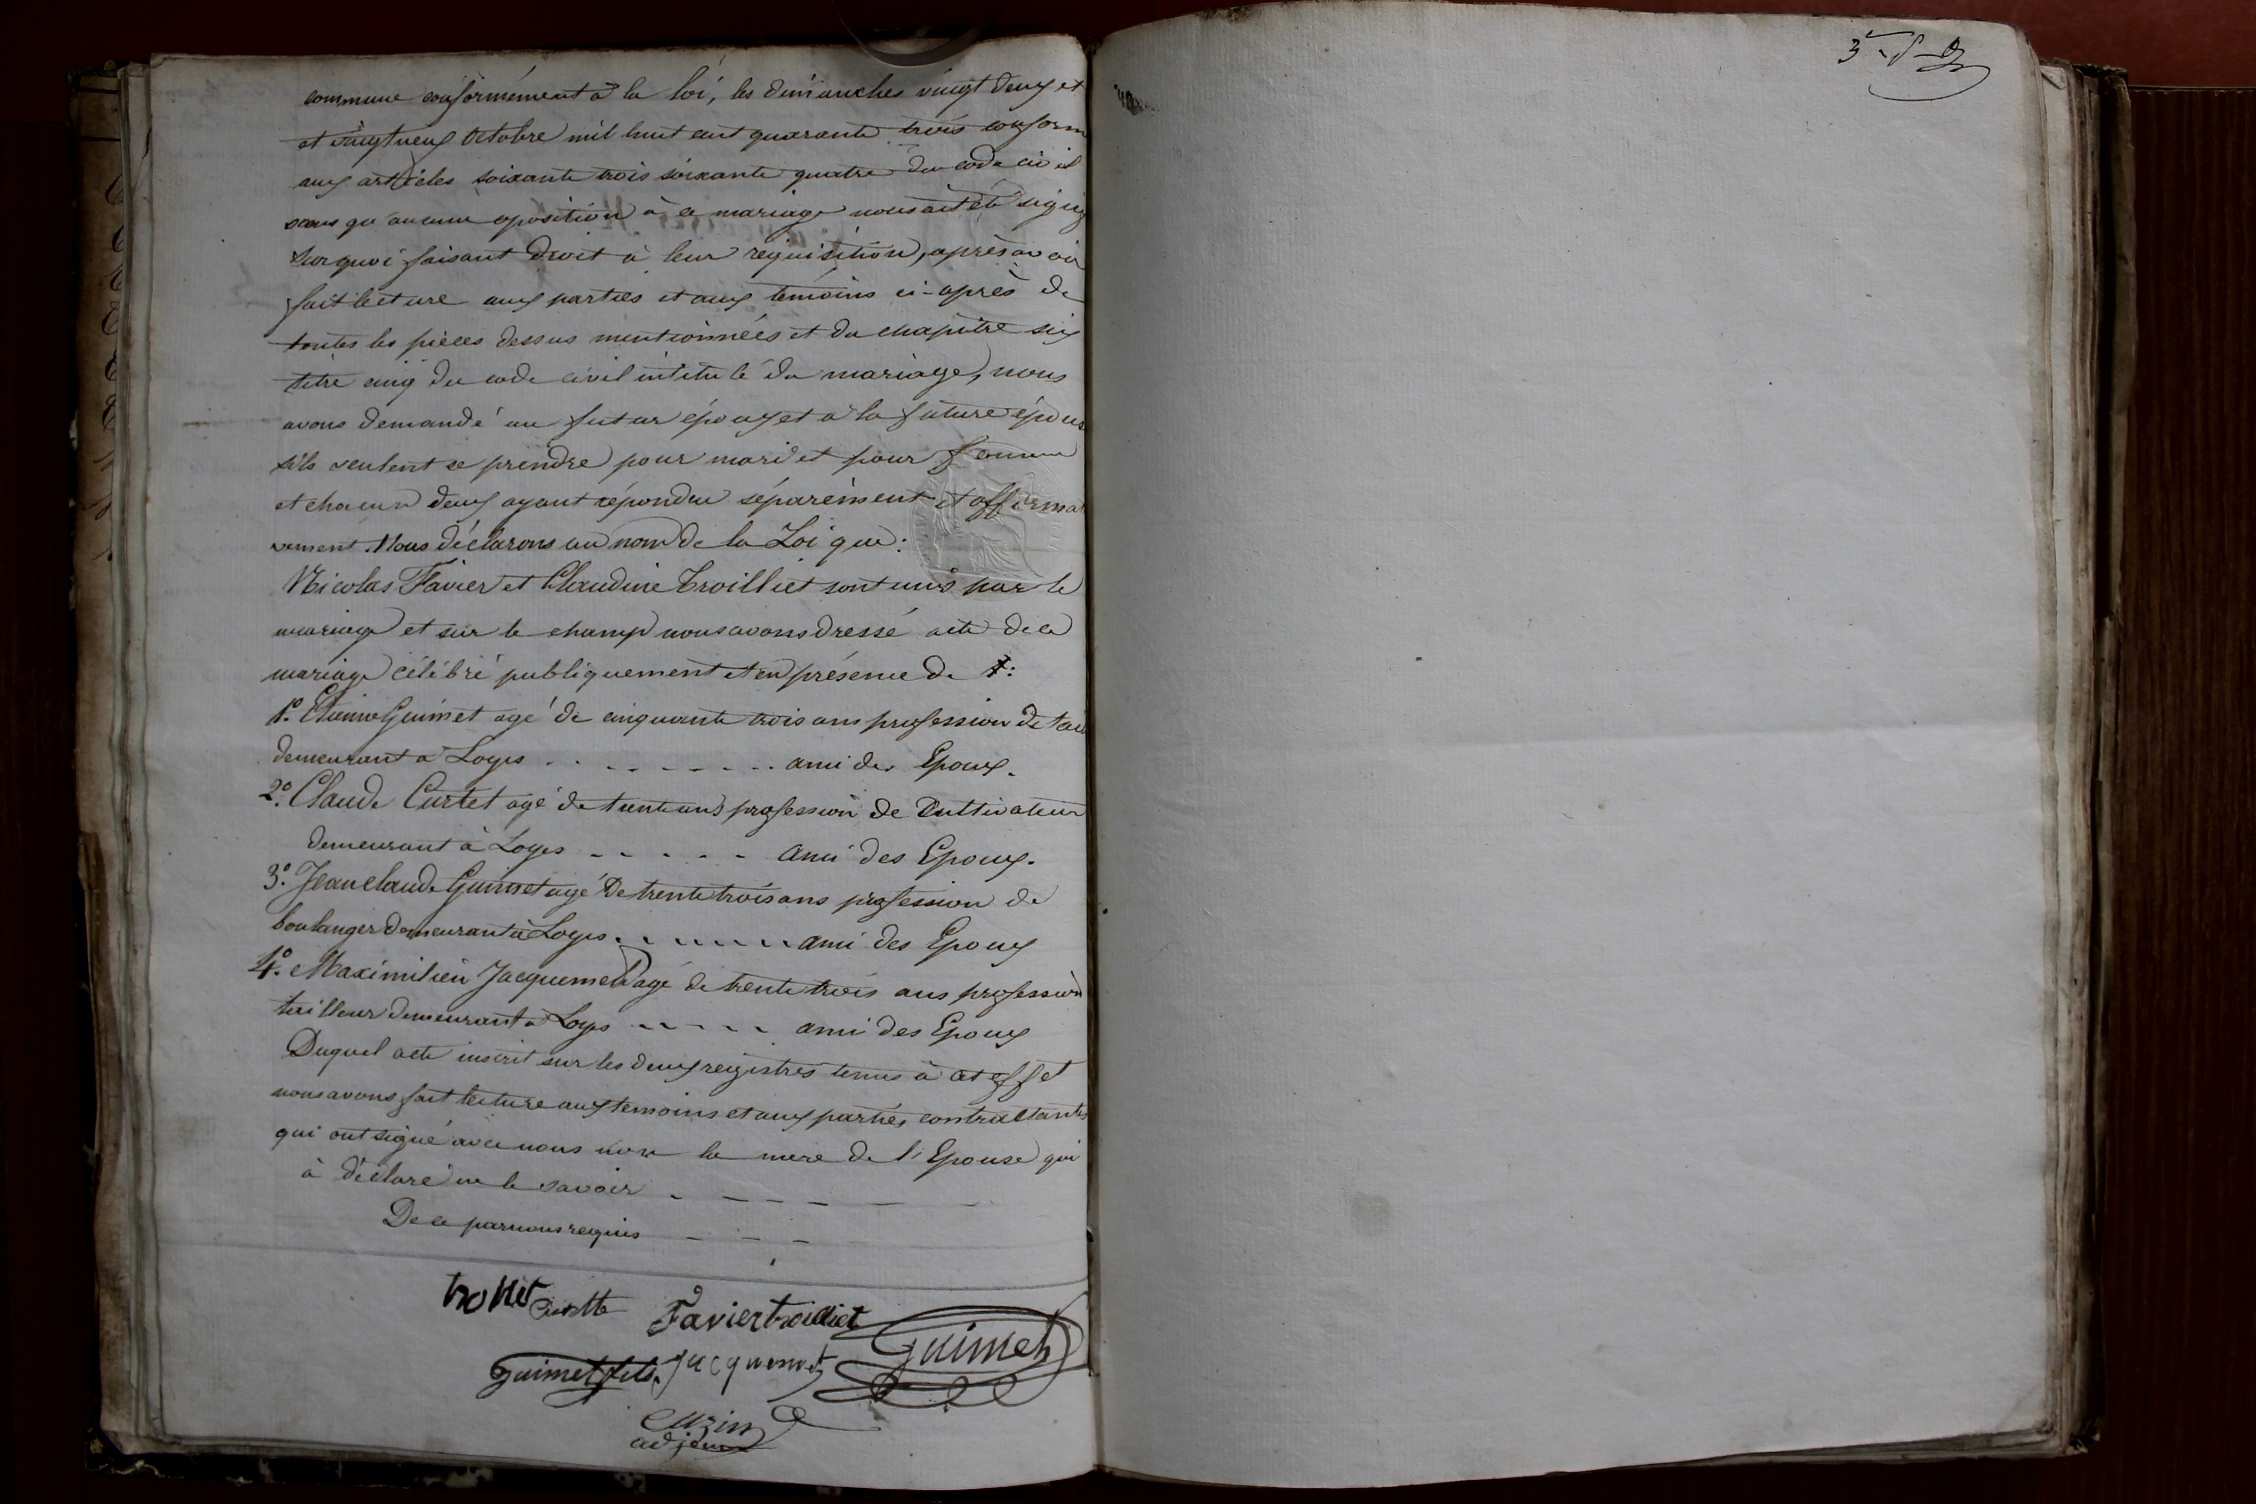 commune conformément à la loi, les dimanches vingt deux et
et vingt neuf Octobre mil huit cent quarante trois conform
aux articles soixante trois soixante quatre du code civil
sans qu'aucune oposition à ce mariage nous ait été signif
sur quoi faisant Droit à leur requisition, après avoir
fait lecture aux parties et aux témoins ci-après de
toutes les pièces dessus mentionnées et du chapitre six
titre cinq du code civil intitulé du mariage, nous
avons demandé au futur époux et a la future épous
s'ils veulent se prendre pour mari et pour femme
et chacun deux ayant répondu séparément et affirmat
vement. Nous déclarons au nom de la Loi que:
Nicolas Favier et Claudine Troilliet sont unis par le
mariage et sur le champ nous avons dressé acte de ce
mariage célébré publiquement et en présence de
1º. Etienne Guimet agé de cinquante trois ans profession de tail
demeurant a Loyes . . - - - - - . . ami des Epoux.
2º. Claude Curtet agé de trente ans profession de Cultivateur
demeurant à Loyes - - - - - ami des Epoux.
3º. Jean claude Guimet agé De trente trois ans profession de
boulanger demeurant à Loyes - - - - - - ami des Epoux
4º. Maximilien Jacquemet agé de trente trois ans profession
tailleur demeurant a Loyes - - - - - ami des Epoux
Duquel acte inscrit sur les deux registres tenus à cet effet
nous avons fait lecture aux temoins et aux parties contractantes
qui ont signé avec nous non la mere de l'Epouse qui
à déclaré ne le savoir - - - - - -
De ce par nous requis - - -
Favier troilliet
guimet fils Jacquemet Guimet
Cuzin
adjoint